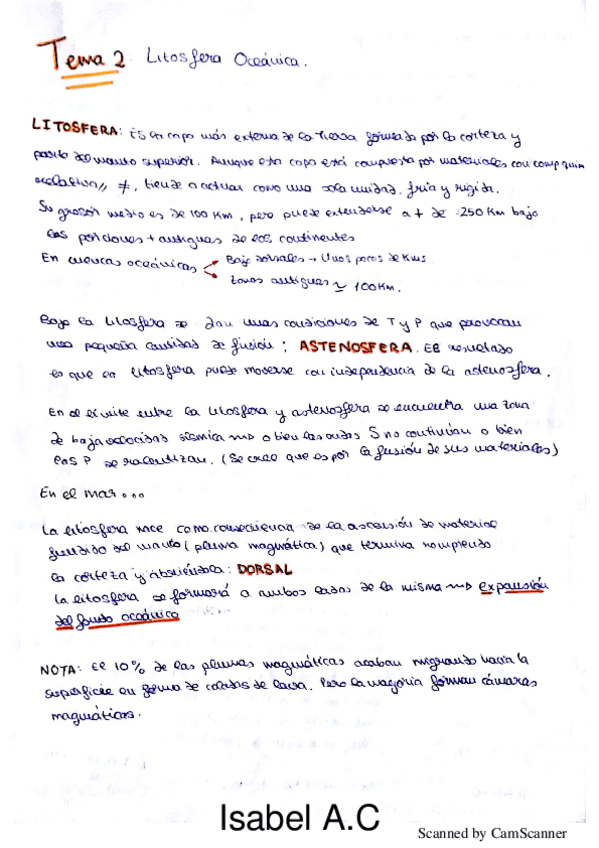 Tema 2 Litosfera Oceánica.
LITOSFERA: Es la capa más externa de la Tierra formada por la corteza y
parte del manto superior. Aunque esta capa está compuesta por materiales con comp quím
relativa// ≠, tiende a actuar como una sola unidad, fría y rígida.
Su grosor medio es de 100 Km, pero puede extenderse a + de 250 Km bajo
las porciones + antiguas de los continentes
En cuencas oceánicas
Bajo dorsales → Unos pocos de Kms
Zonas antiguas ≃ 100Km.
Bajo la litosfera se dan unas condiciones de T y P que provocan
una pequeña cantidad de fusión: ASTENOSFERA. El resultado
es que la litosfera puede moverse con independencia de la astenosfera.
En el límite entre la litosfera y astenosfera se encuentra una zona
de baja velocidad sísmica ⇝ o bien las ondas S no continúan o bien
las P se ralentizan. (Se cree que es por la fusión de sus materiales)
En el mar...
La litosfera nace como consecuencia de la ascensión de material
fundido del manto (pluma magmática) que termina rompiendo
la corteza y abriéndola: DORSAL
La litosfera se formará a ambos lados de la misma ⇝ expansión
del fondo oceánico
NOTA: El 10% de las plumas magmáticas acaban migrando hacia la
superficie en forma de coladas de lava. Pero la mayoría forman cámaras
magmáticas.
Isabel A.C
Scanned by CamScanner